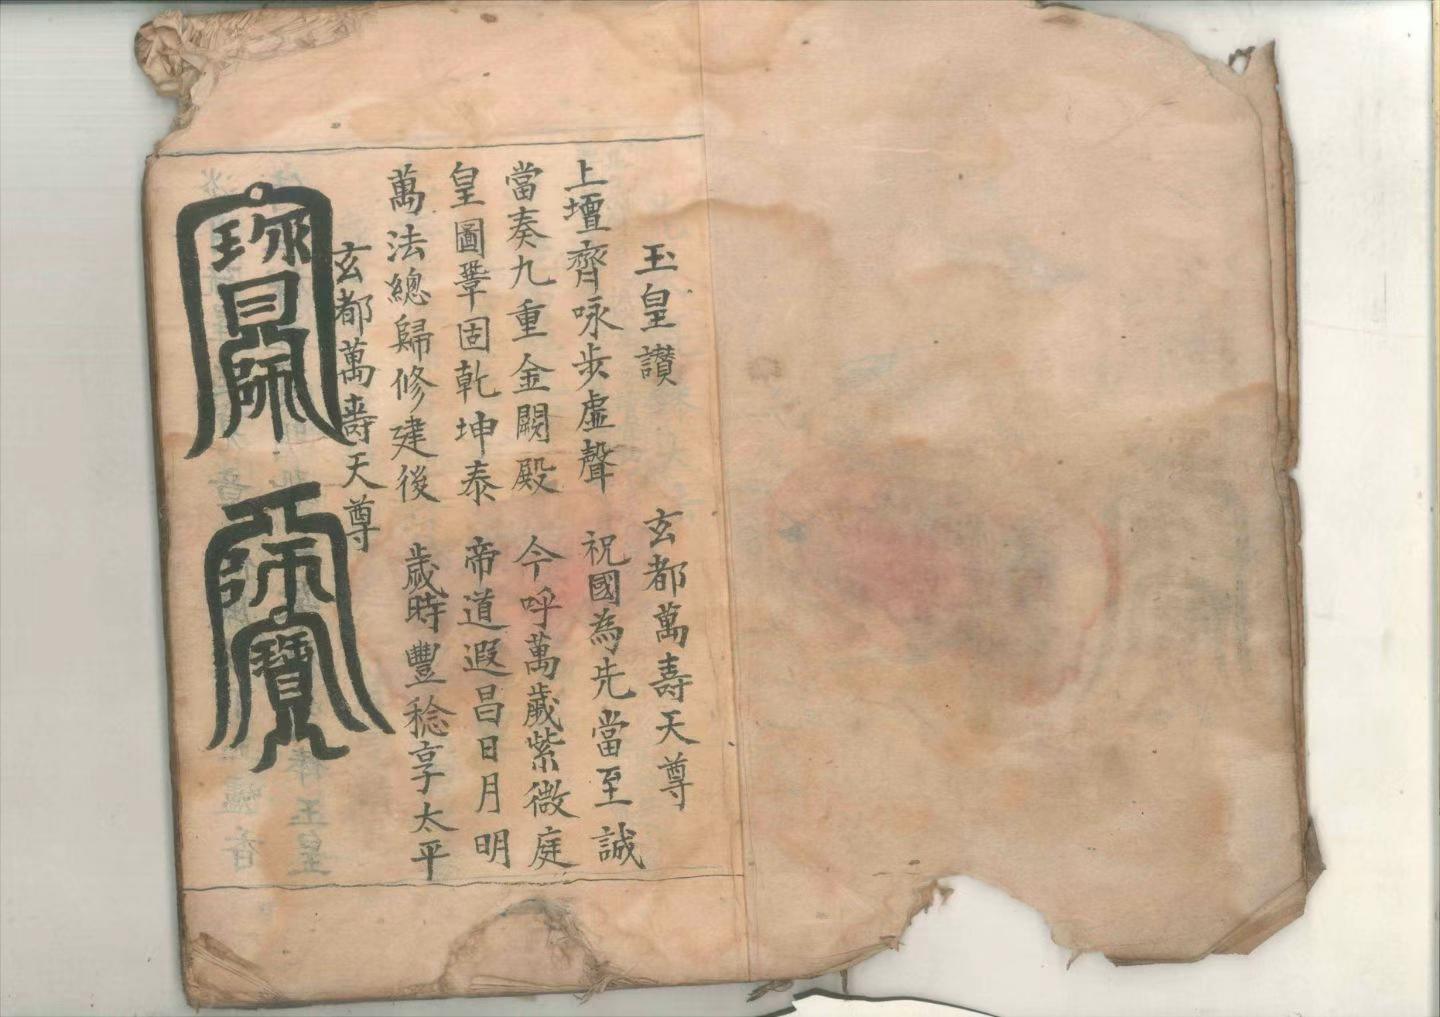 玉皇讚　玄都萬壽天尊
上壇齊咏步虛聲　祝國為先當至誠
當奏九重金闕殿　今呼萬歲紫微庭
皇圖鞏固乾坤泰　帝道遐昌日月明
萬法總歸修建後　歲時豐稔享太平
玄都萬壽天尊
師寶